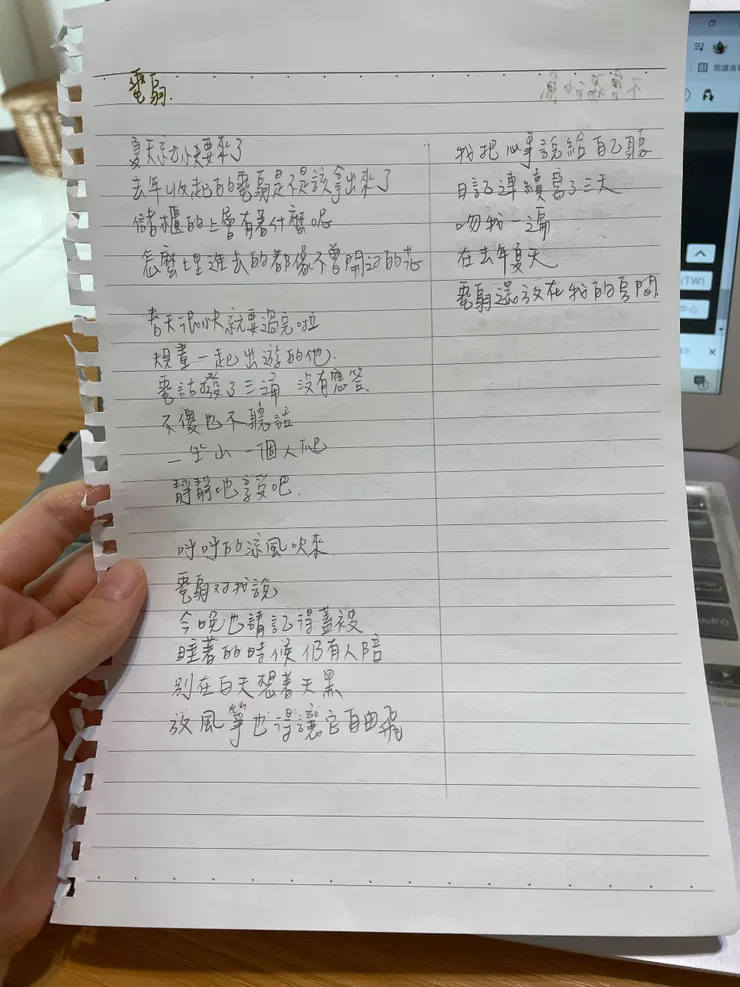 電扇
夏天就快要來了
去年收起的電扇是不是該拿出來了
儲櫃的上會有著什麼呢
怎麼埋進去的都像不曾開過的花
春天很快就要過完啦
規畫一起出遊的他
電話發了三通 沒有應答
不傻也不聽話
一坐山 一個人爬
靜靜地享受吧
呼呼的涼風吹來
電扇对我說
今晚也請記得蓋被
睡著的時候仍有人陪
別在白天想著天黑
放風箏也得讓它自由飛
我把心事說給自己聽
日記連續寫了三天
吻我一遍
在去年夏天
電扇還放在我的房間
(TW)